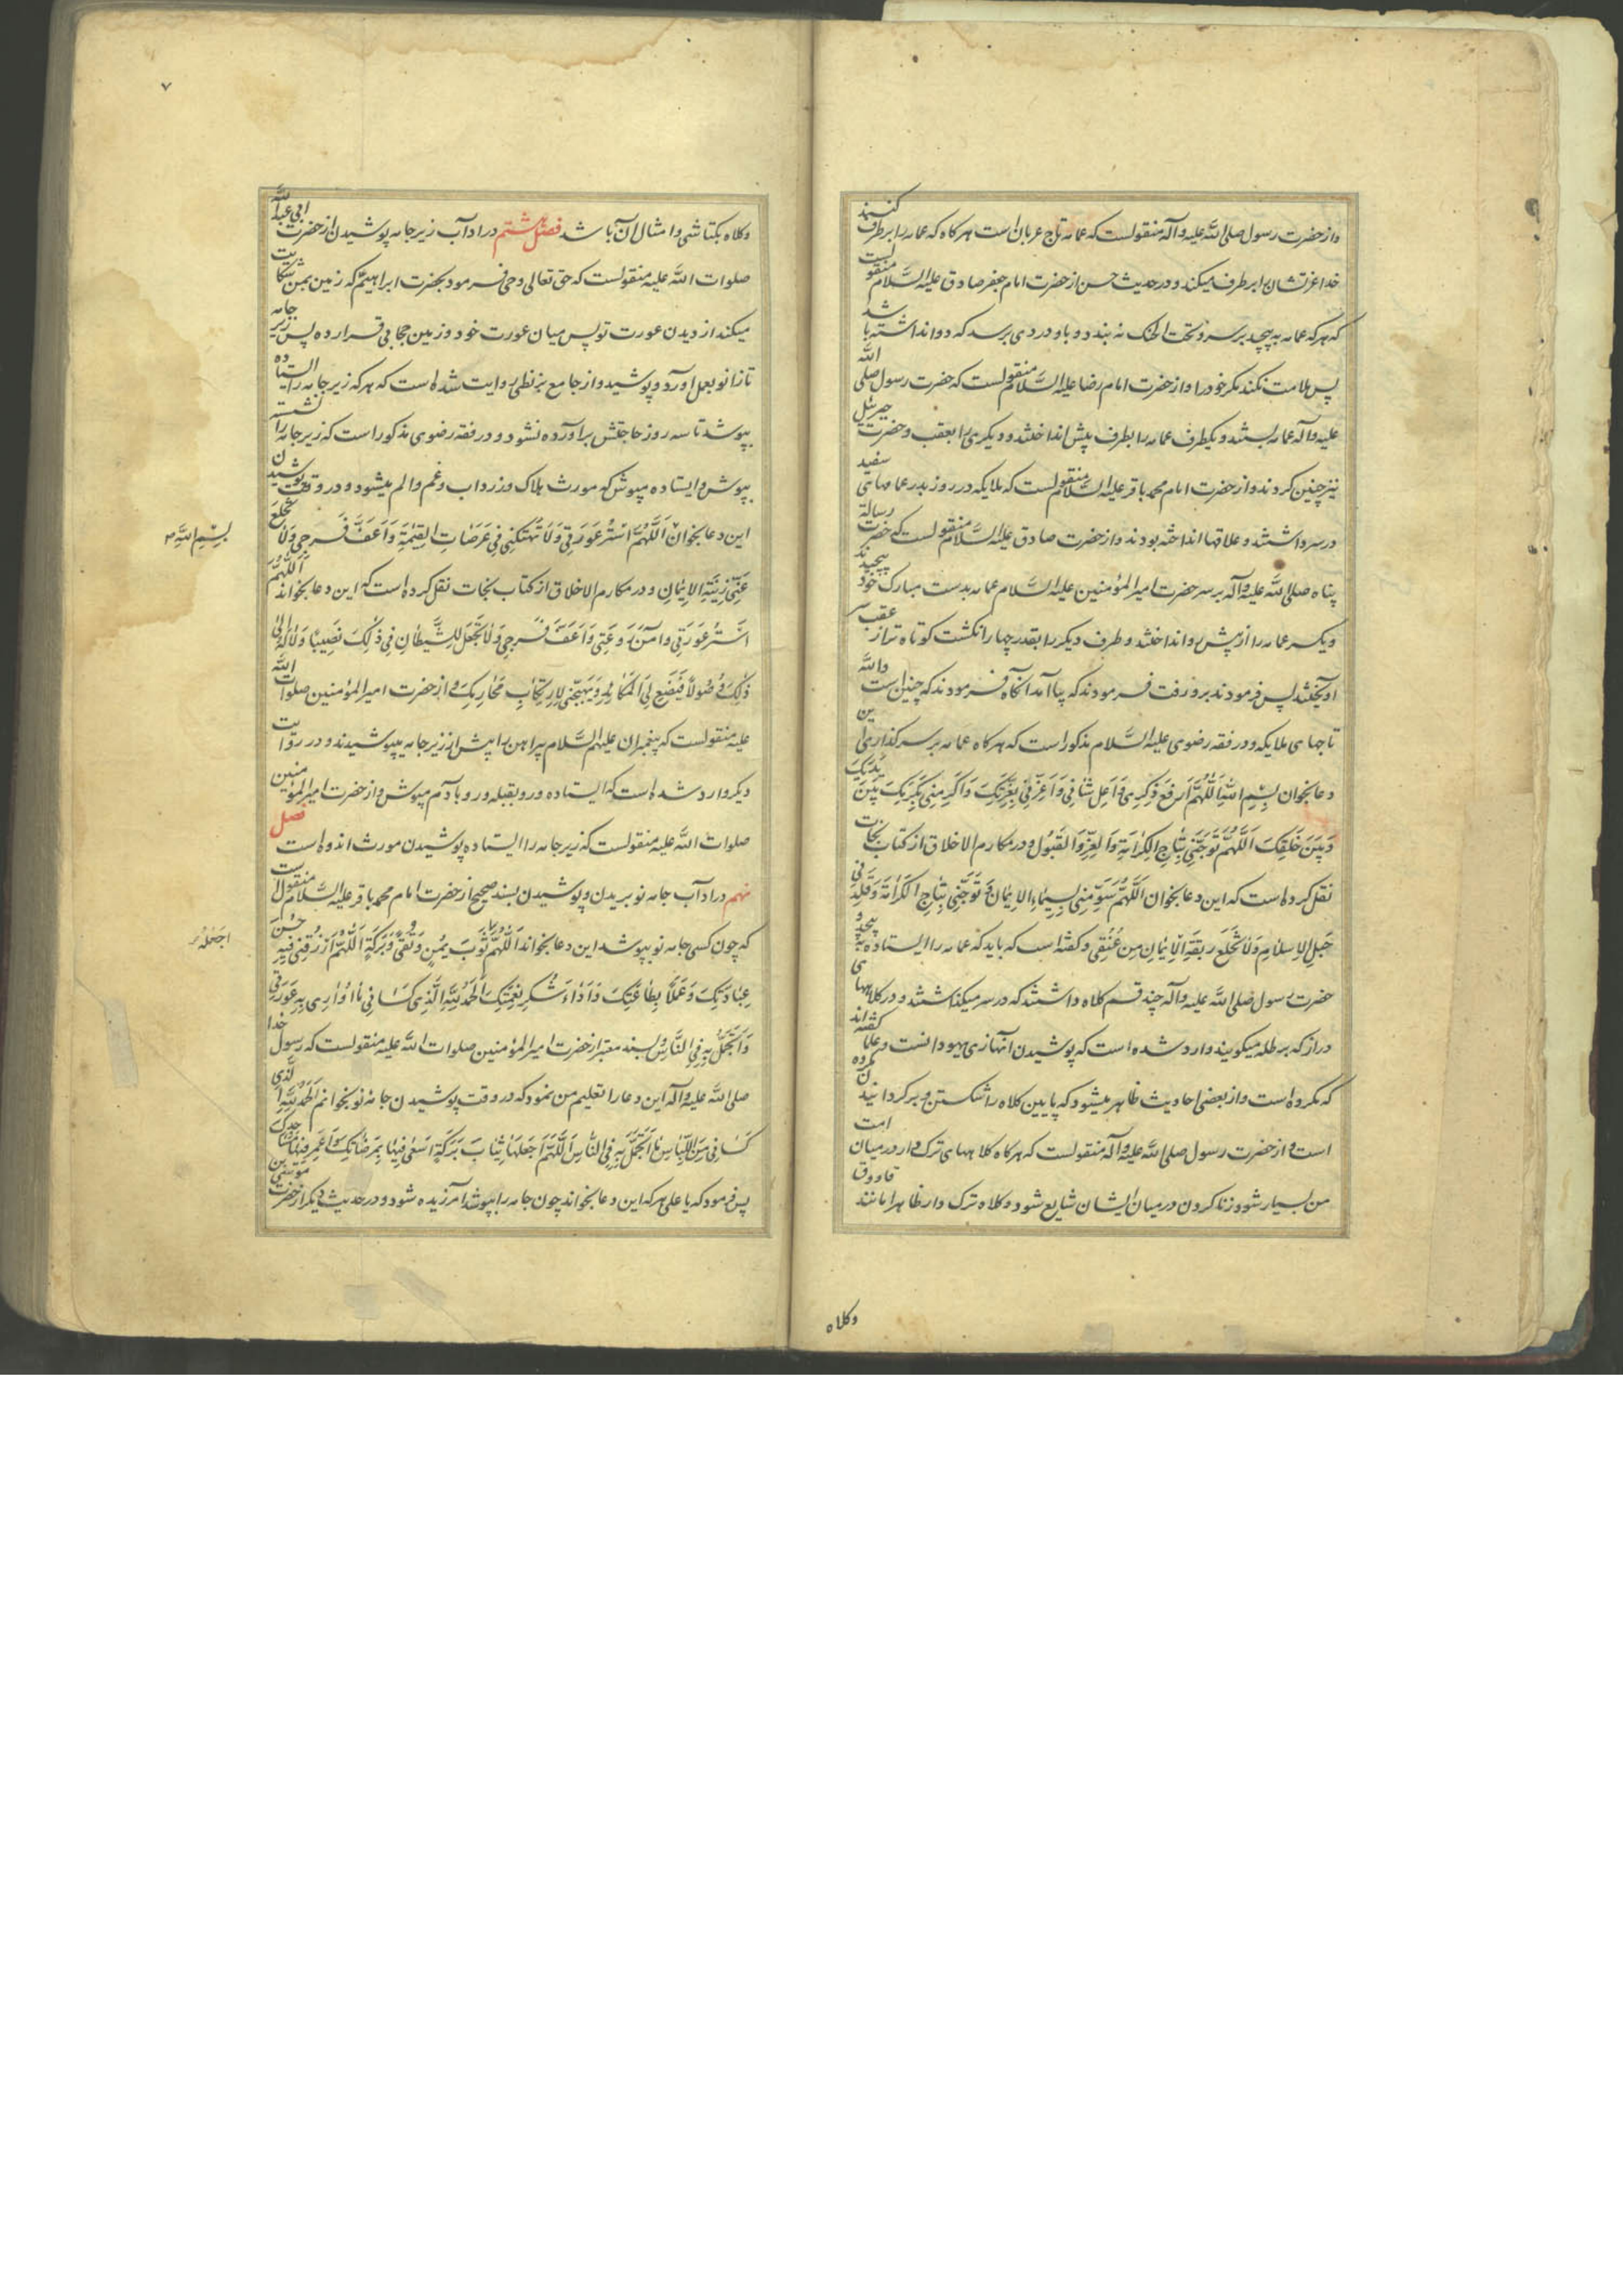 واز حضرت رسول صلی الله علیه وآله منقولست که عمامه تاج عربان است هرکاه که عمامه را برطرف کنند
خدا عزتشان را برطرف میکند و در حدیث حسن از حضرت امام جعفر صادق علیه السلام منقولست
که هرکه عمامه به پیچد بر سر و تحت الحنک نه بندد و باو دردی برسد که دوا نداشته باشد
پس ملامت نکند مکر خود را واز حضرت امام رضا علیه السلام منقولست که حضرت رسول صلی الله
علیه وآله عمامه بستند و یکطرف عمامه را بطرف پیش انداختند و دیکری را بعقب و حضرت جبرئیل
نیز چنین کردند واز حضرت امام محمد باقر علیه السلام منقولست که ملایکه در روز بدر عمامهای سفید
در سر داشتند و علاقها انداخته بودند واز حضرت صادق علیه السلام منقولست که حضرت رسالة
پناه صلی الله علیه وآله بر سر حضرت امیر المؤمنین علیه السلام عمامه بدست مبارک خود پیچیدند
ویکسر عمامه را از پیش رو انداختند و طرف دیکر را بقدر چهار انکشت کوتاه تر از عقب سر
آویختند پس فرمودند برو رفت فرمودند که بیا آمد آنکاه فرمودند که چنین است والله
تاجهای ملایکه و در فقه رضوی علیه السلام مذکور است که هرکاه عمامه بر سر کذاری این
دعا بخوان بِسْمِ اللهِ اَللّهُمَّ اَرْفَعْ ذِکْرِی وَاَعْلِ شَاْنِی وَاَعِزَّنِی بِعِزَّتِکَ وَاَکْرِمْنِی بِکَرَمِکَ بَیْنَ یَدَیْکَ
وَبَیْنَ خَلْقِکَ اَللّهُمَّ تَوِّجْنِی بِتاجِ الکَرامَةِ وَالعِزِّ وَالقَبُولِ و در مکارم الاخلاق از کتاب نجات
نقل کرده است که این دعا بخوان اَللّهُمَّ سَوِّمْنِی بِسِیماءِ الاِیمانِ وَتَوِّجْنِی بِتاجِ الکَرامَةِ وَقَلِّدْنِی
حَبْلَ الاِسْلامِ وَلا تَخْلَعْ رِبْقَةَ الاِیمانِ مِنْ عُنُقِی و کفته است که باید که عمامه را ایستاده به پیچد و
حضرت رسول صلی الله علیه وآله چند قسم کلاه داشتند که در سر میکذاشتند و در کلاههای
دراز که برطله میکویند وارد شده است که پوشیدن آنها زی یهودانست و علما کفته اند
که مکروه است واز بعضی احادیث ظاهر میشود که پایین کلاه را شکستن و برکردانیدن مکروه
است و از حضرت رسول صلی الله علیه وآله منقولست که هرکاه کلاههای ترک دار در میان امت
من بسیار شود زنا کردن در میان ایشان شایع شود و کلاه ترک دار ظاهرا مانند قاووق
وکلاه
۷
وکلاه بکتاشی وامثال آن باشد فصل هشتم در آداب زیر جامه پوشیدن از حضرت ابی عبد الله
صلوات الله علیه منقولست که حق تعالی وحی فرمود بحضرت ابراهیم که زمین بمن شکایت
میکند از دیدن عورت تو پس میان عورت خود و زمین حجابی قرار ده پس زیر جامه
تا زانو بعمل آورد و پوشید واز جامع بزنطی روایت شده است که هرکه زیر جامه را ایستاده
بپوشد تا سه روز حاجتش برآورده نشود و در فقه رضوی مذکور است که زیر جامه را نشسته
بپوش و ایستاده مپوش که مورث هلاک و زرداب و غم والم میشود و در وقت پوشیدن
این دعا بخوان اَللّهُمَّ اسْتُرْ عَوْرَتِی وَلا تَهْتِکْنِی فِی عَرَصاتِ القِیمَةِ وَاَعِفَّ فَرْجِی وَلا تَخْلَعْ
بِسْمِ اللهِ
عَنِّی زِینَةَ الاِیمانِ و در مکارم الاخلاق از کتاب نجات نقل کرده است که این دعا بخواند اَللّهُمَّ
اسْتُرْ عَوْرَتِی وَآمِنْ رَوْعَتِی وَاَعِفَّ فَرْجِی وَلا تَجْعَلْ لِلشَّیْطانِ فِی ذلِکَ نَصِیبًا وَلا لَهُ اِلی
ذلِکَ وُصُولًا فَیَضَعَ لِیَ المَکائِدَ وَیُهَیِّجَنِی لِارْتِکابِ مَحارِمِکَ و از حضرت امیر المؤمنین صلوات الله
علیه منقولست که پیغمبران علیهم السلام پیراهن را پیش از زیر جامه میپوشیدند و در روایت
دیکر وارد شده است که ایستاده و رو بقبله و رو بآدم مپوش واز حضرت امیر المؤمنین
صلوات الله علیه منقولست که زیر جامه را ایستاده پوشیدن مورث اندوه است فصل
نهم در آداب جامه نو بریدن و پوشیدن بسند صحیح از حضرت امام محمد باقر علیه السلام منقولست
که چون کسی جامه نو بپوشد این دعا بخواند اَللّهُمَّ ثَوْبَ یُمْنٍ وَتُقیً وَبَرَکَةٍ اَللّهُمَّ ارْزُقْنِی فِیهِ حُسْنَ
اجْعَلْهُ
عِبادَتِکَ وَعَمَلًا بِطاعَتِکَ وَاَداءَ شُکْرِ نِعْمَتِکَ اَلحَمْدُ لِلّهِ الَّذِی کَسانِی ما اُوارِی بِهِ عَوْرَتِی
وَاَتَجَمَّلُ بِهِ فِی النَّاسِ و بسند معتبر از حضرت امیر المؤمنین صلوات الله علیه منقولست که رسول خدا
صلی الله علیه وآله این دعا را تعلیم من نمود که در وقت پوشیدن جامه نو بخوانم اَلحَمْدُ لِلّهِ الَّذِی
کَسانِی مِنَ اللِّباسِ ما اَتَجَمَّلُ بِهِ فِی النَّاسِ اَللّهُمَّ اجْعَلْها ثِیابَ بَرَکَةٍ اَسْعی فِیها بِمَرْضاتِکَ وَاَعْمُرُ فِیها مَساجِدَکَ
پس فرمود که یا علی هرکه این دعا بخواند چون جامه را بپوشد آمرزیده شود و در حدیث دیکر از حضرت